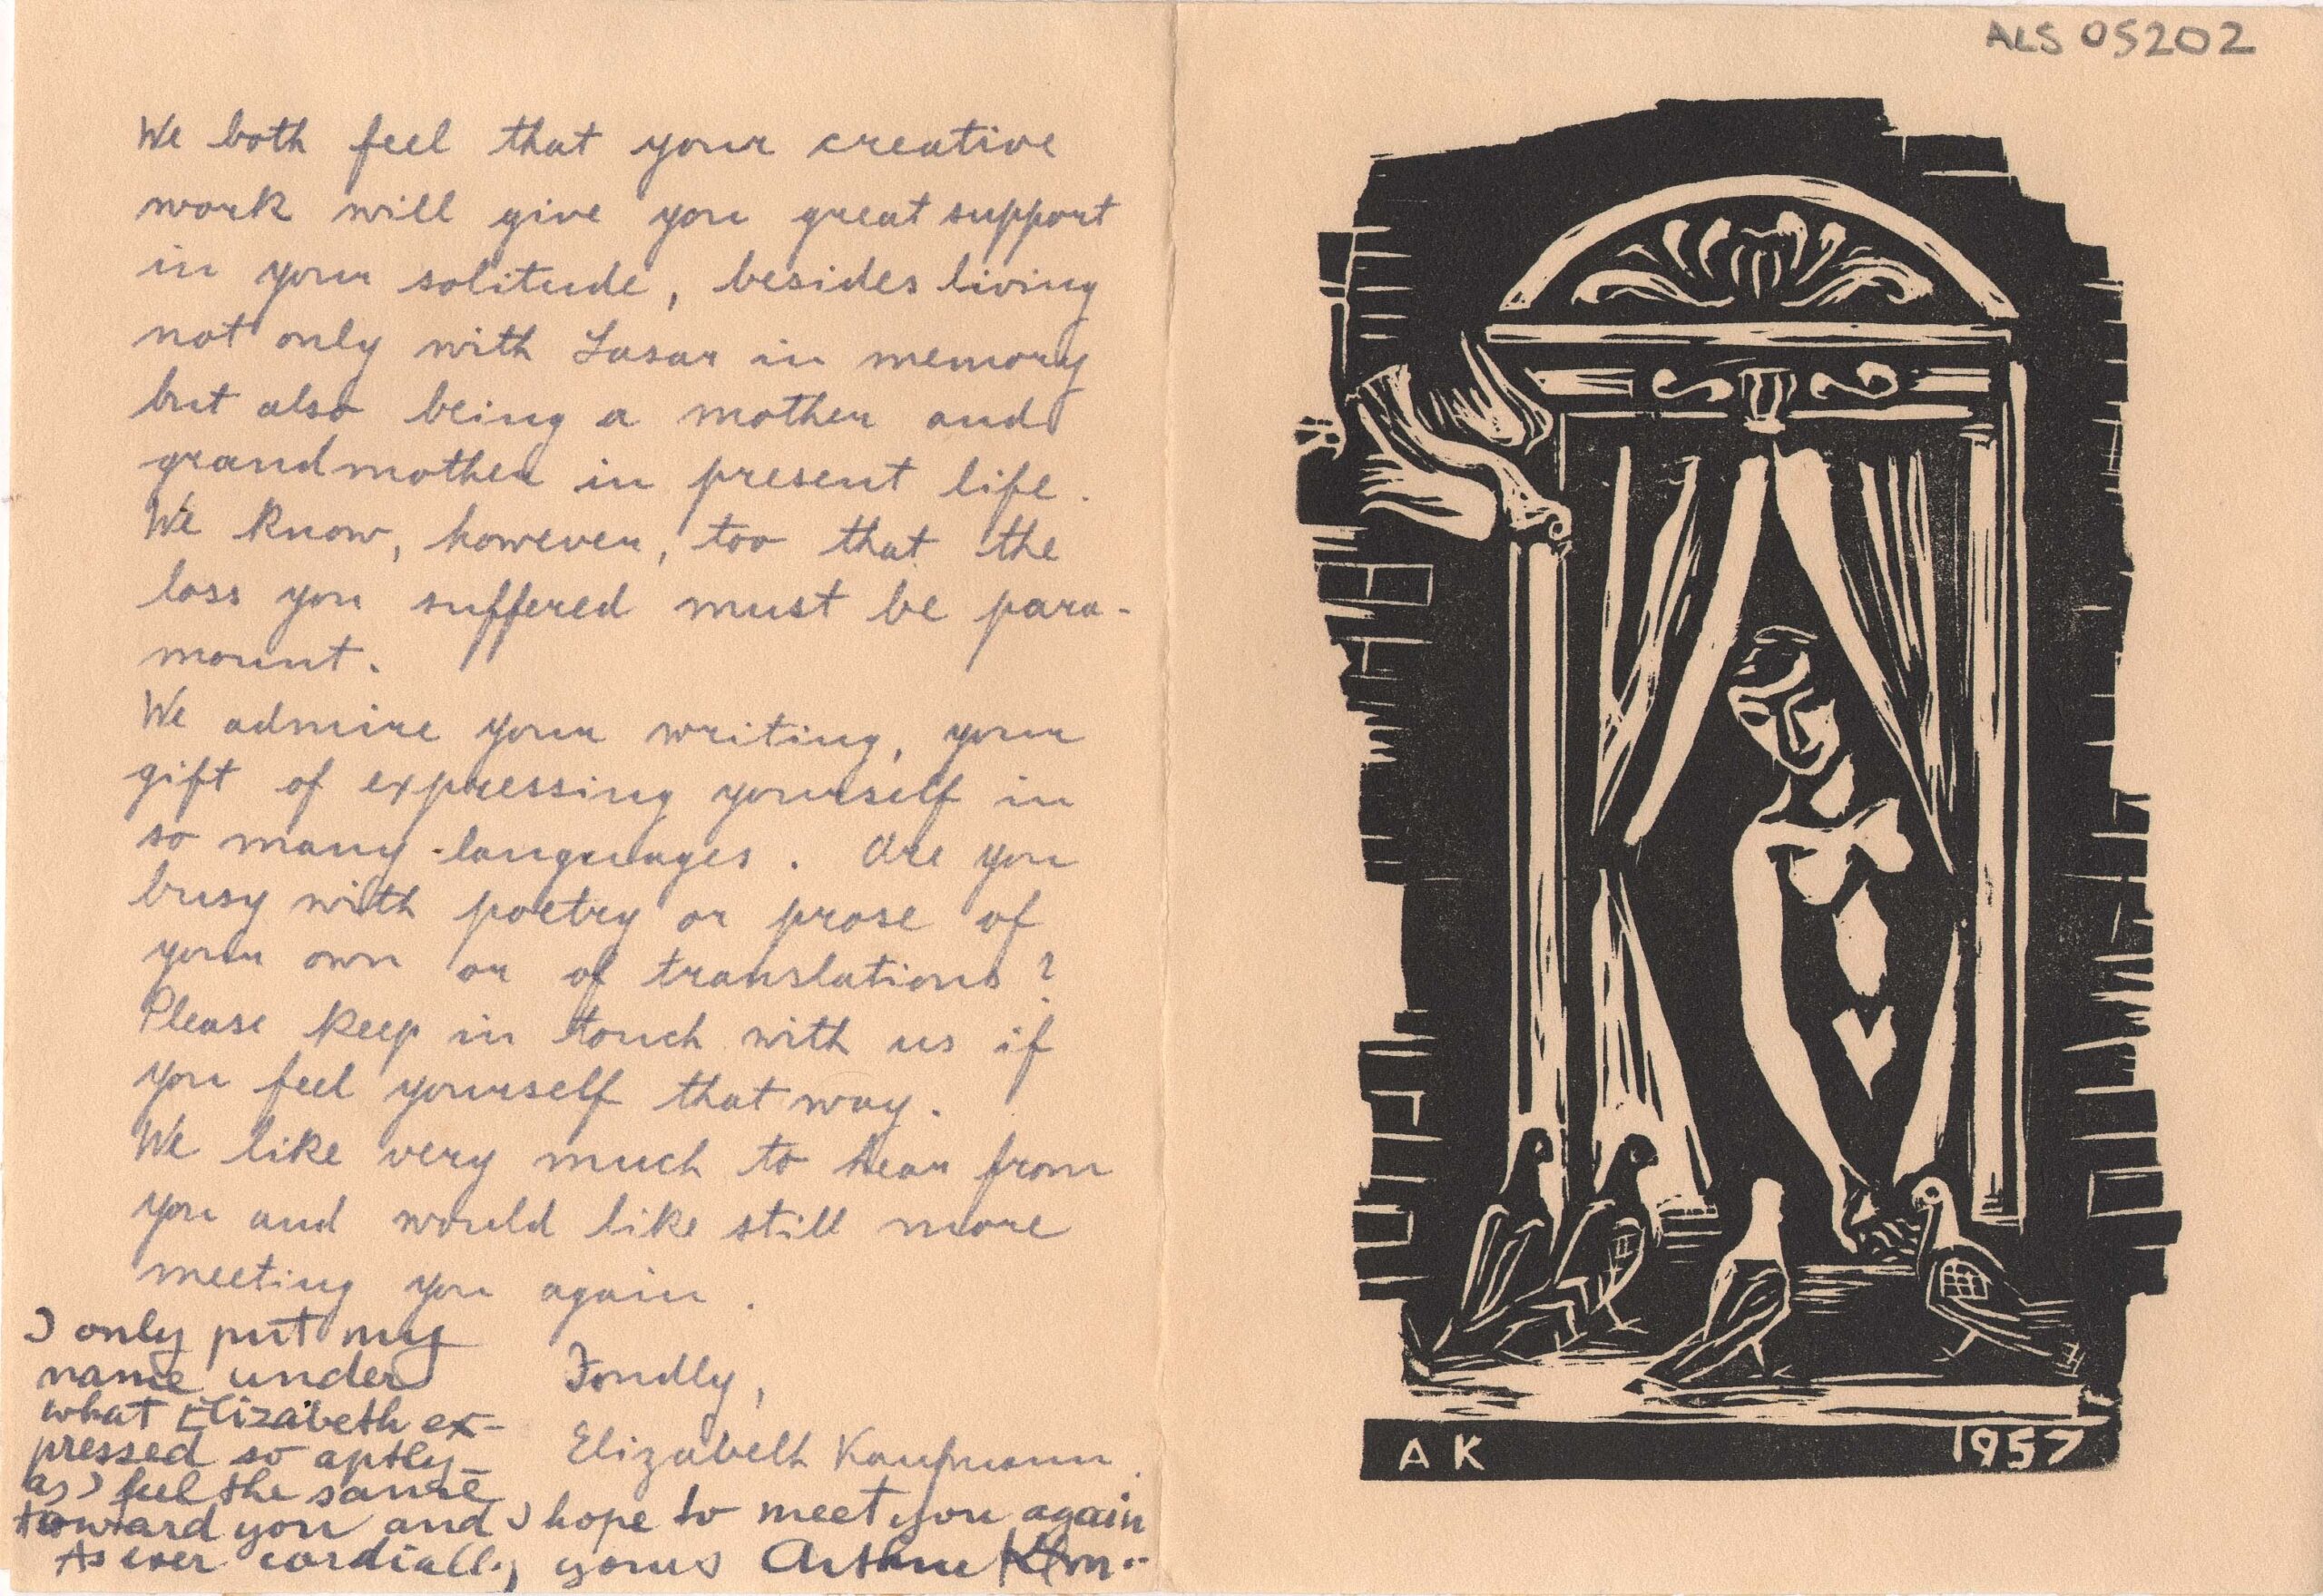 We both feel that your creative
work will give you great support
in your solitude, besides living
not only with Lasar in memory
but also being a mother and
grandmother in present life.
We know, however, too that the
loss you suffered must be para-
mount.
We admire your writing, your
gift of expressing yourself in
so many languages. Are you
busy with poetry or prose of
your own or of translations?
Please keep in touch with us if
you feel yourself that way.
We like very much to hear from
you and would like still more
meeting you again.
Fondly,
Elizabeth Kaufmann.
I only put my
name under
what Elizabeth ex-
pressed so aptly—
as I feel the same
toward you and I hope to meet you again
As ever cordially, yours Arthur
ALS 05202
AK 1957